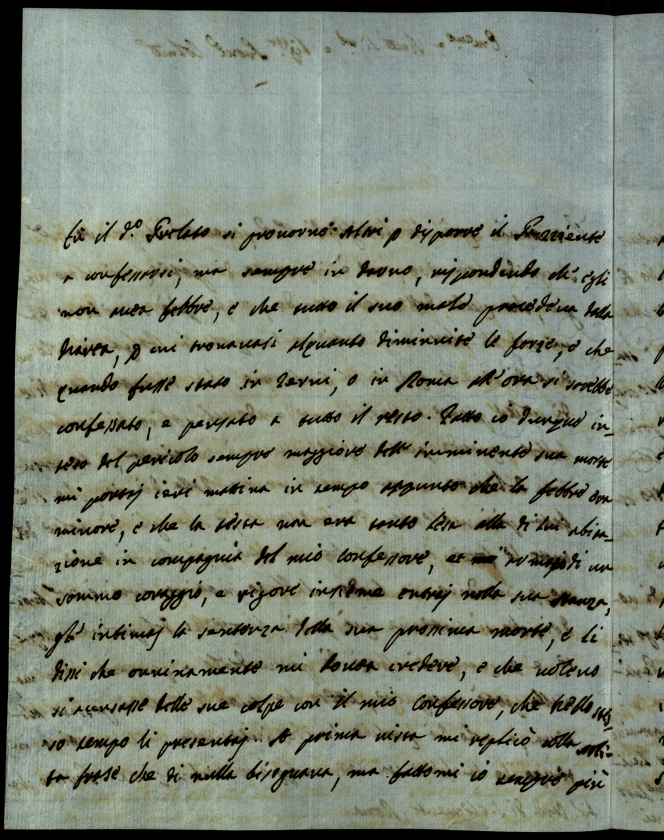 Ed il d.º Prelato si provorno altri p disporre il Paziente
a confessarsi, ma sempre in darno, rispondendo ch' egli
non avea febbre, e che tutto il suo male procedeva dalla
diarea, p cui trovavasi alquanto diminuite le forze, e che
quando fosse stato in Terni, o in Roma all' ora si sarebbe
confessato, e pensato a tutto il resto. Fatto io dunque in=
teso del pericolo sempre maggiore dell' imminente sua morte
mi portaj ieri mattina in tempo appunto che la febbre era
minore, e che la testa non era tanto lesa alla di lui abita=
zione in compagnia del mio Confessore, et armatomi di un
sommo coraggio, e rigore insieme entraj nella sua stanza,
gl' intimaj la sentenza della sua prossima morte, e li
dissi che onninamente mi dovea credere, e che volevo
si accusasse delle sue colpe con il mio Confessore, che nello stes=
so tempo li presentaj. A prima vista mi replicò colla soli=
ta frase che di nulla bisognava, ma fattomi io sempre più